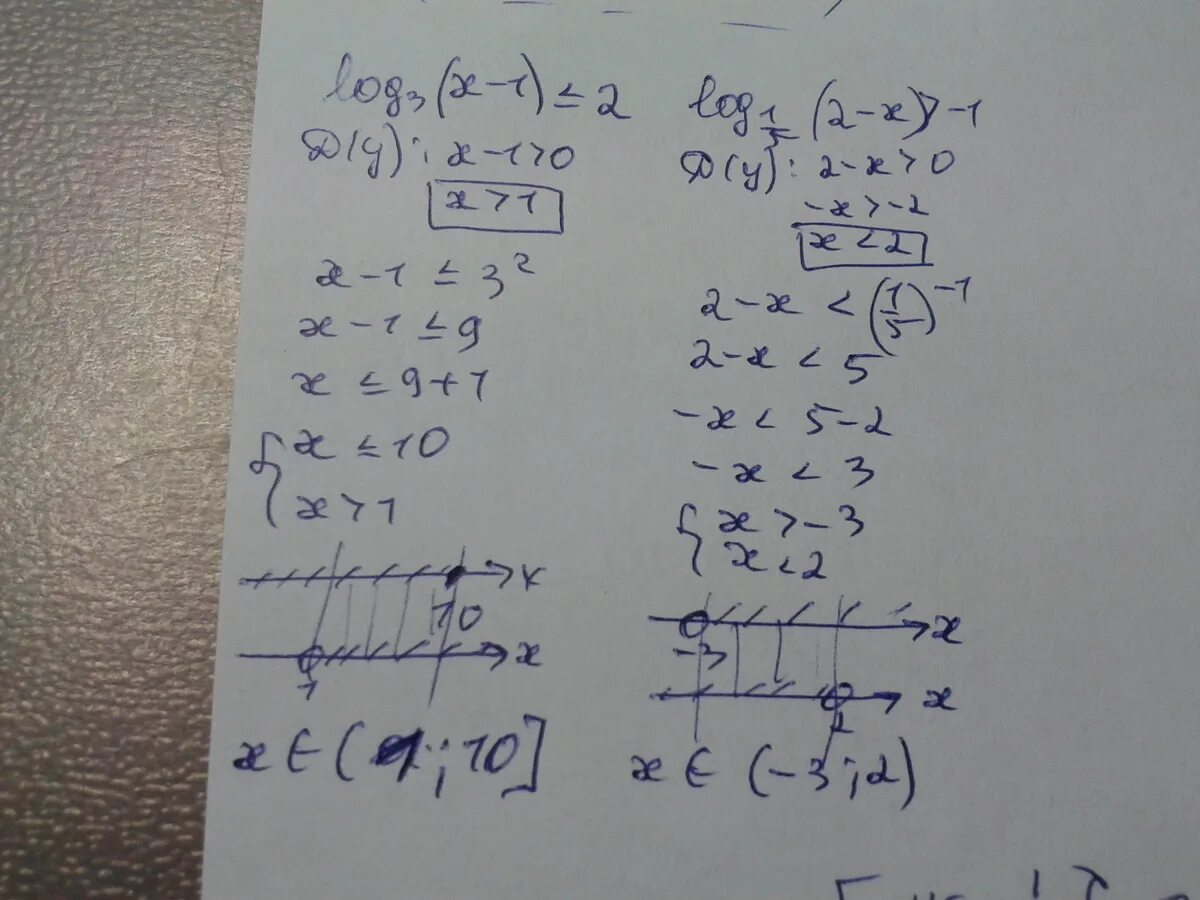 log₃(x-1) ≤ 2
D(y): x-1>0
x>1
x-1 ≤ 3²
x-1 ≤ 9
x ≤ 9+1
{ x ≤ 10
x>1
x
10
x
1
x ∈ (1; 10]
log_{1/5} (2-x) > -1
D(y): 2-x>0
-x>-2
x<2
2-x < (1/5)^{-1}
2-x < 5
-x < 5-2
-x < 3
{ x > -3
x < 2
x
-3
x
2
x ∈ (-3; 2)